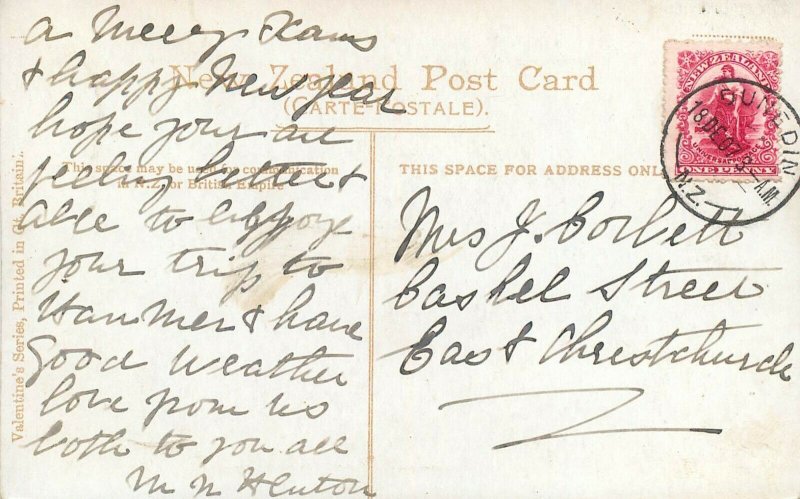 a Merry Xams
& happy New year
hope your are
feeling better &
able to enjoye
your trip to
Hanmer & have
Good Weather
love from us
both to you all
M N Henton
New Zealand Post Card
(CARTE POSTALE).
This space may be used for communication
in N.Z. or British Empire
THIS SPACE FOR ADDRESS ONLY
Mrs J. Corbett
Cashel Street
East Christchurch
Valentine's Series, Printed in Gt. Britain.
NEW ZEALAND
UNIVERSAL POSTAGE
ONE PENNY
DUNEDIN
18 DE 07 9 - A.M.
N.Z.